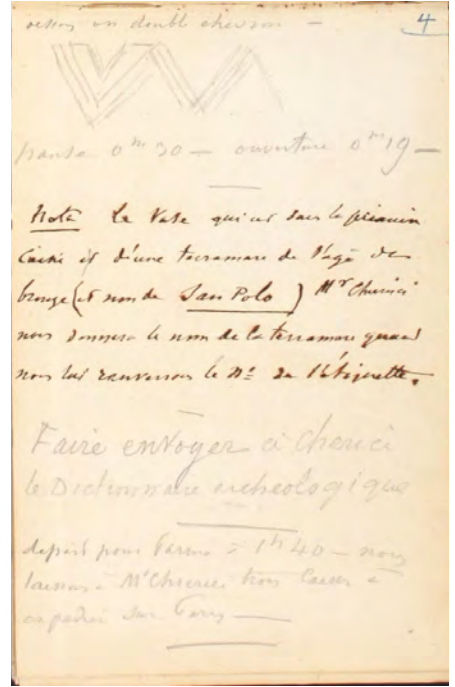 4
en double chevron —
panse 0m 30 — ouverture 0m 19 —
Nota Le Vase qui est dans la
Caisse est d'une terramare de l'age de
bronze (et non de San Polo) Mr Chierici
nous donnera le nom de la terramare quand
nous lui renverrons le No de l'étiquette.
Faire envoyer à Chierici
le Dictionnaire archeologique
depart pour Parme à 1h 40 — nous
laissons à Mr Chierici trois Caisses à
expedier sur Paris —